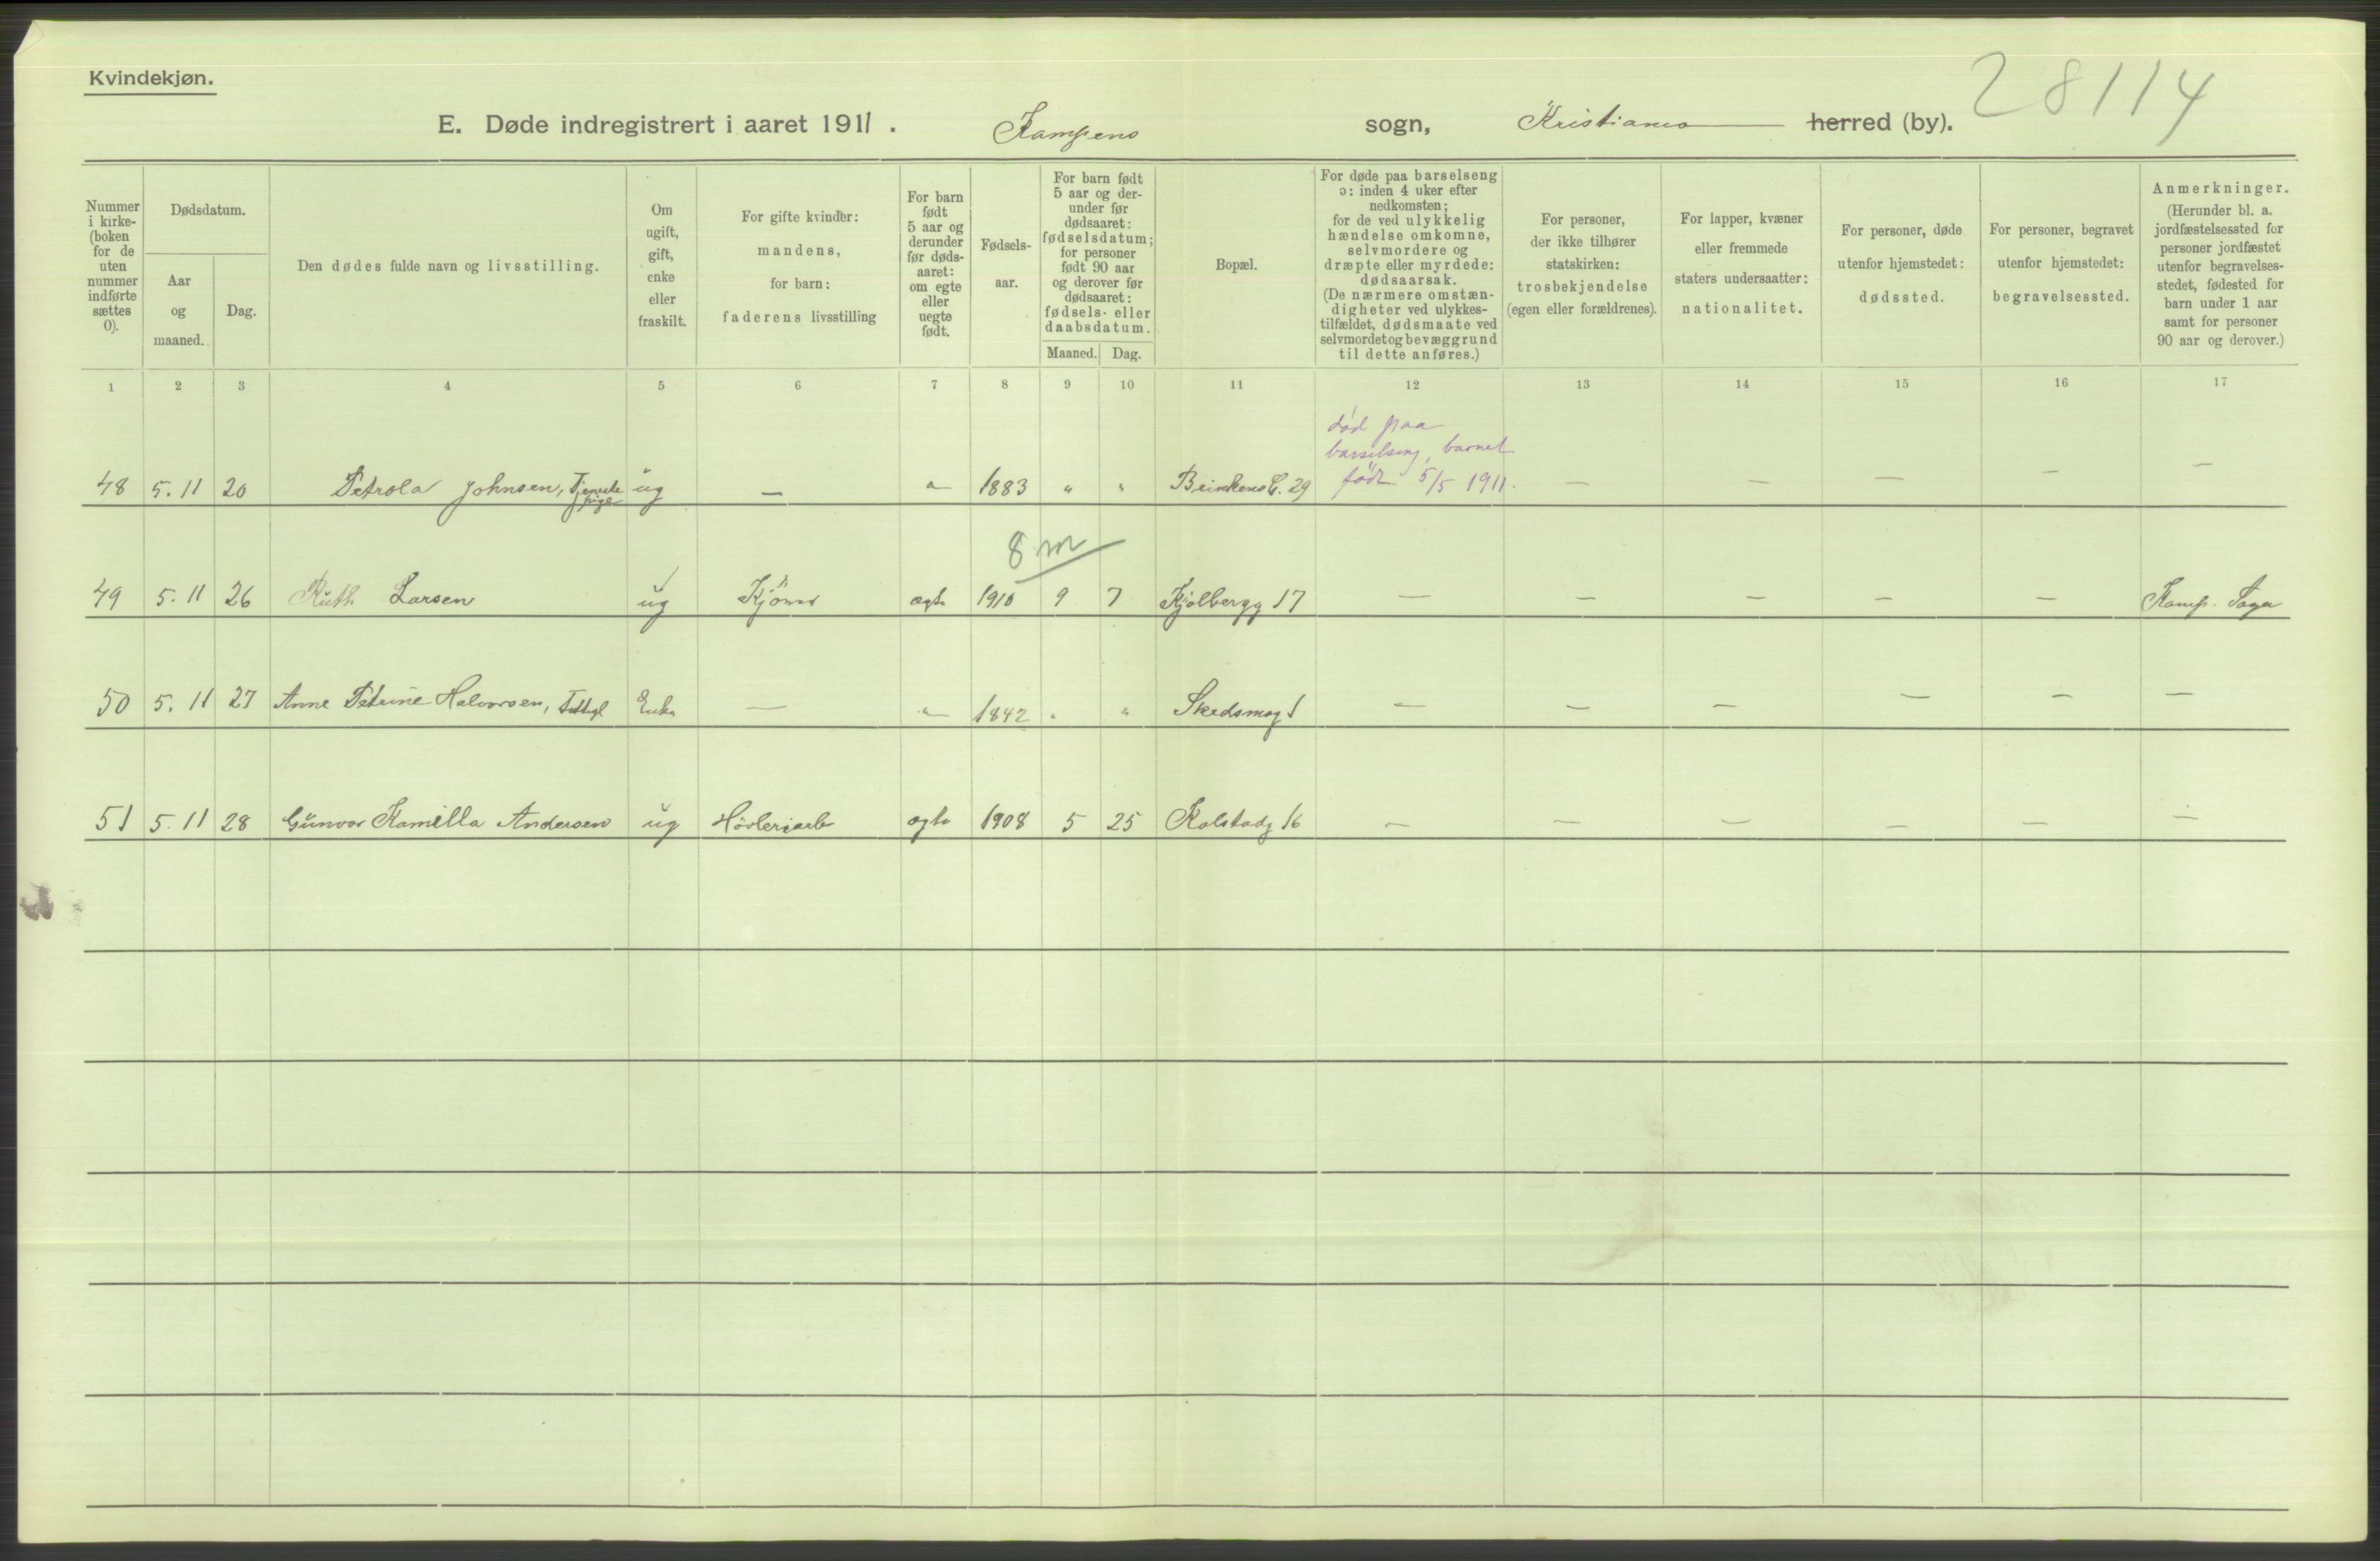 Kvindekjøn.
28114
E. Døde indregistrert i aaret 1911. Kampens sogn, Kristiania herred (by).
Nummer i kirke- (boken for de uten nummer indførte sættes 0).
Dødsdatum.
Aar og maaned.
Dag.
Den dødes fulde navn og livsstilling.
Om ugift, gift, enke eller fraskilt.
For gifte kvinder: mandens, for barn: faderens livsstilling
For barn født 5 aar og derunder før døds- aaret: om egte eller uegte født.
Fødsels- aar.
For barn født 5 aar og der- under før dødsaaret: fødselsdatum; for personer født 90 aar og derover før dødsaaret: fødsels- eller daabsdatum.
Maaned. Dag.
Bopæl.
For døde paa barselseng ɔ: inden 4 uker efter nedkomsten; for de ved ulykkelig hændelse omkomne, selvmordere og dræpte eller myrdede: dødsaarsak. (De nærmere omstæn- digheter ved ulykkes- tilfældet, dødsmaate ved selvmordet og bevæggrund til dette anføres.)
For personer, der ikke tilhører statskirken: trosbekjendelse (egen eller forældrenes).
For lapper, kvæner eller fremmede staters undersaatter: nationalitet.
For personer, døde utenfor hjemstedet: dødssted.
For personer, begravet utenfor hjemstedet: begravelsessted.
Anmerkninger. (Herunder bl. a. jordfæstelsessted for personer jordfæstet utenfor begravelses- stedet, fødested for barn under 1 aar samt for personer 90 aar og derover.)
1 2 3 4 5 6 7 8 9 10 11 12 13 14 15 16 17
død paa
barselseng, barnet
48 5.11 20 Petrola Johnsen, Tjeneste pige ug — " 1883 " " Brinkens G. 29 født 5/5 1911. — — — — —
8 m
49 5.11 26 Ruth Larsen ug Kjører egte 1910 9 7 Kjølbergg 17 — — — — — Kamp. Sogn
50 5.11 27 Anne Petrine Halvorsen, Enke — " 1842 " " Skedsmog 1 — — — — — —
51 5.11 28 Gunvor Kamilla Andersen ug Høvleriarb egte 1908 5 25 Kolstadg 16 — — — — — —